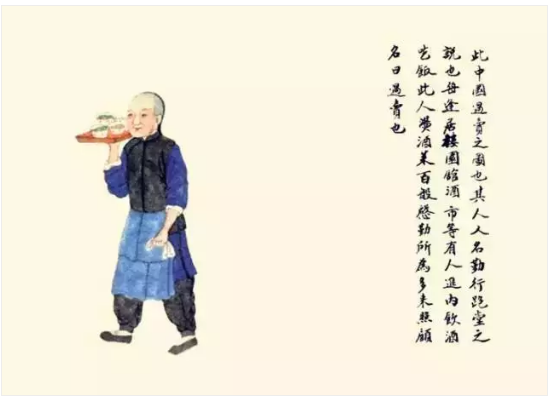 此中國過賣之圖也其人人名勤行跑堂之
說也每逢居樓園館酒市等有人進內飲酒
吃飯此人賣酒菜百般慇勤所為多來照顧
名曰過賣也